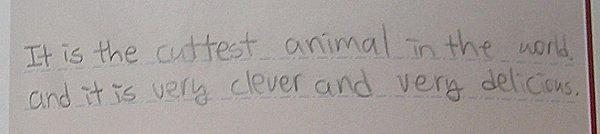 It is the cuttest animal in the world.
and it is very clever and very delicious.